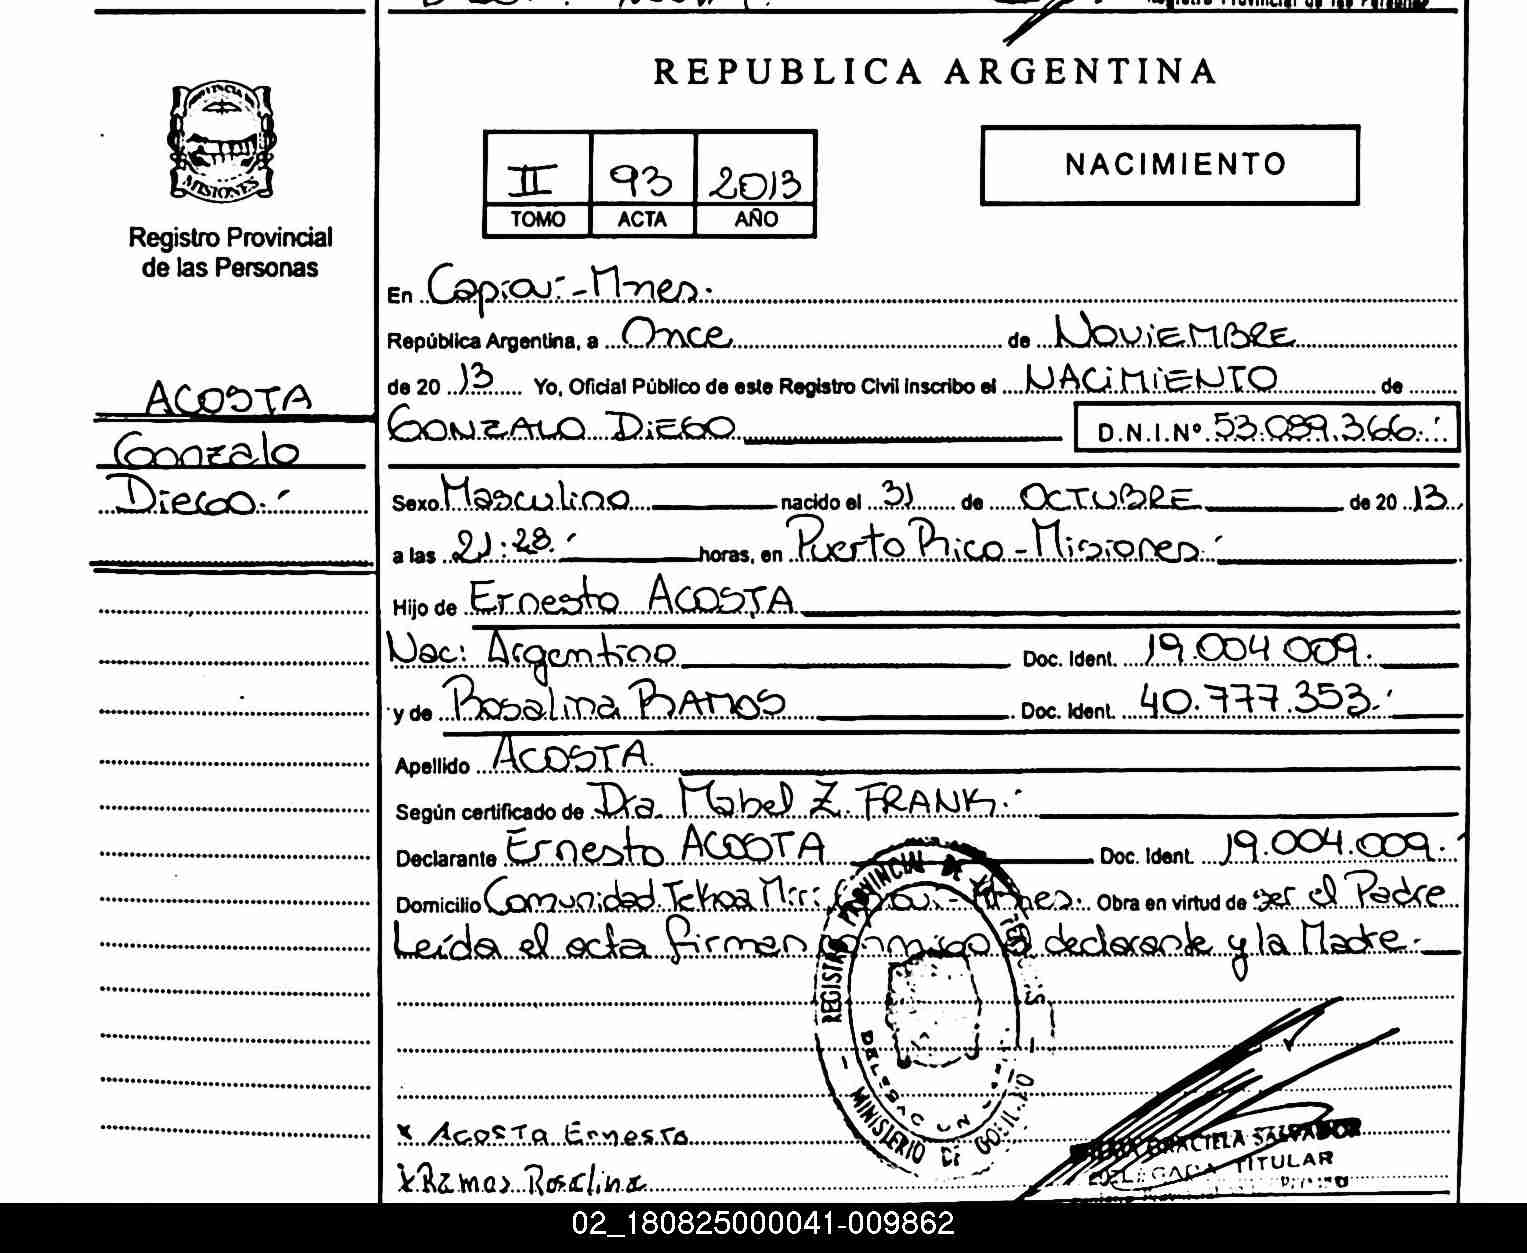 Registro Provincial de las Personas
REPUBLICA ARGENTINA
PROVINCIA DE
MISIONES
Registro Provincial
de las Personas
ACOSTA
Gonzalo
Diego.-
II 93 2013
TOMO ACTA AÑO
NACIMIENTO
En Capioví-Mnes.
República Argentina, a Once de NOVIEMBRE
de 20 13 Yo, Oficial Público de este Registro Civil inscribo el NACIMIENTO de
GONZALO DIEGO D.N.I.Nº 53.089.366.-
Sexo Masculino nacido el 31 de OCTUBRE de 20 13
a las 21:28.- horas, en Puerto Rico-Misiones.-
Hijo de Ernesto ACOSTA
Nac: Argentino Doc. Ident. 19.004.009.
y de Rosalina RAMOS Doc. Ident. 40.777.353.-
Apellido ACOSTA
Según certificado de Dra. Mabel Z. FRANK.-
Declarante Ernesto ACOSTA Doc. Ident. 19.004.009.-
Domicilio Comunidad Tekoa Miri Capiovi-Mnes. Obra en virtud de ser el Padre
Leída el acta firman conmigo el declarante y la Madre.
REGISTRO PROVINCIAL DE
MINISTERIO DE GOBIERNO
x ACOSTA Ernesto
x Ramos Rosalina
GRACIELA SALVADOR
DELEGADA TITULAR
02_180825000041-009862